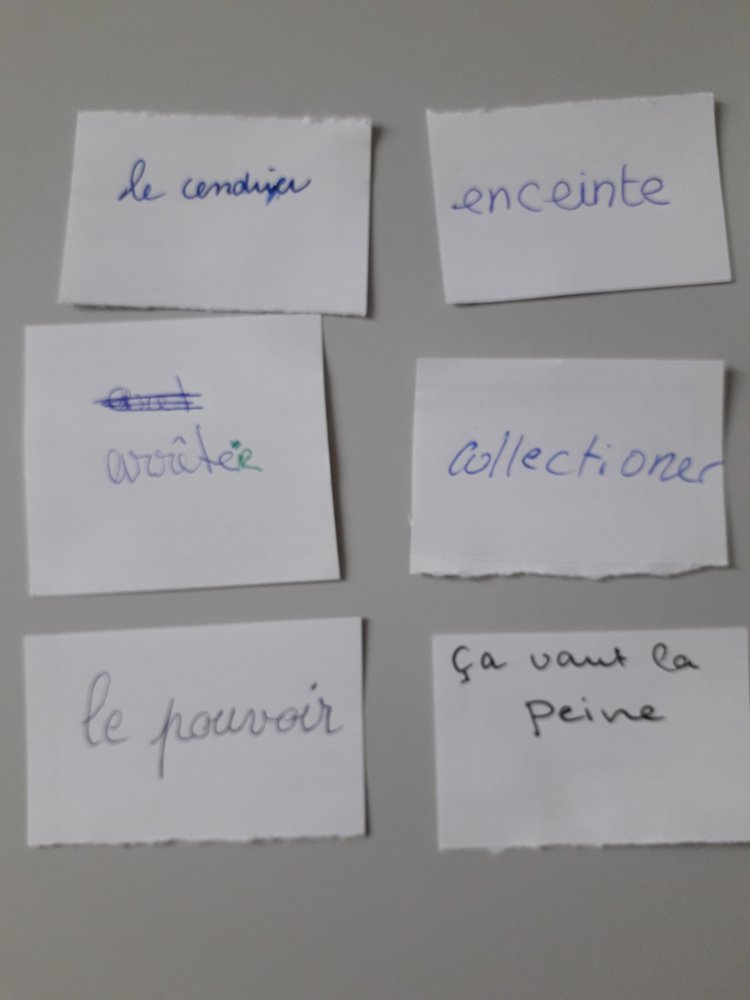 le cendrier
enceinte
arrêtée
collectioner
le pouvoir
ça vaut la
peine